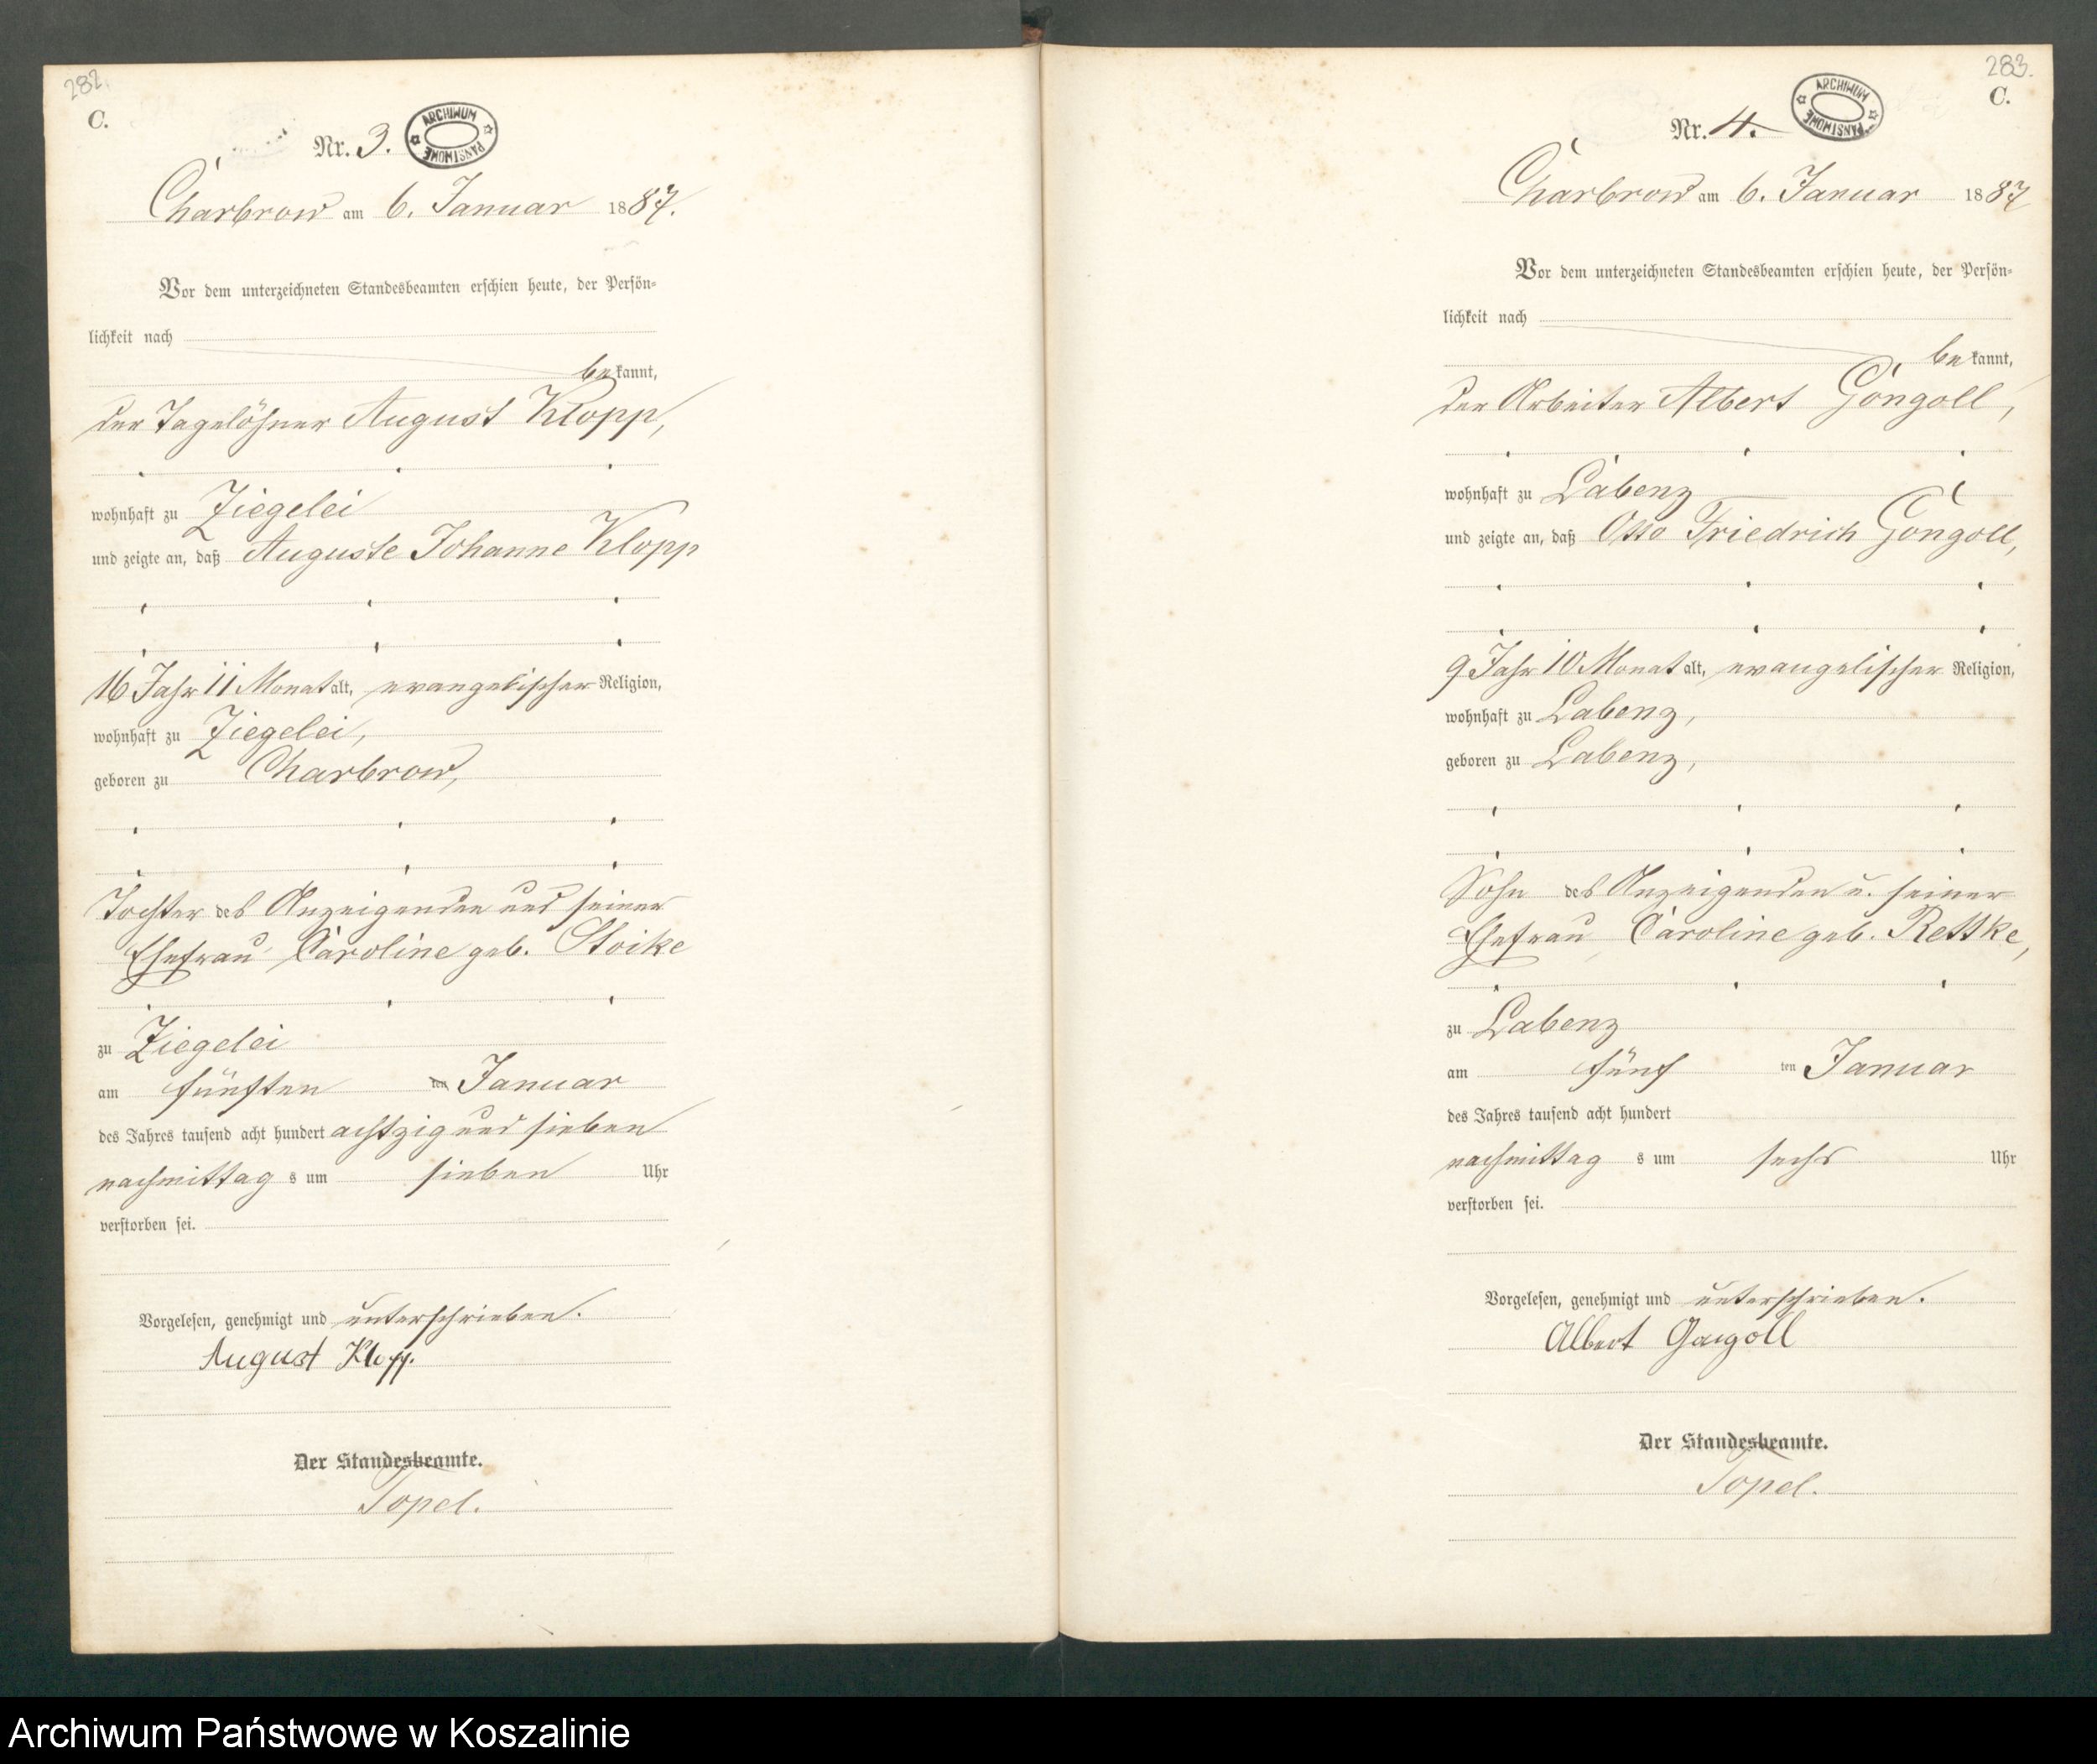 282.
C.
Nr. 3.
ARCHIWUM PAŃSTWOWE
Charbrow am 6. Januar 1887.
Vor dem unterzeichneten Standesbeamten erschien heute, der Persön-
lichkeit nach
bekannt,
der Tagelöhner August Klopp,
wohnhaft zu Ziegelei
und zeigte an, daß Auguste Johanne Klopp
16 Jahr 11 Monat alt, evangelischer Religion,
wohnhaft zu Ziegelei,
geboren zu Charbrow,
Tochter des Anzeigenden und seiner
Ehefrau Caroline geb. Stoike
zu Ziegelei
am fünften ten Januar
des Jahres tausend acht hundert achtzig und sieben
nachmittag s um sieben Uhr
verstorben sei.
Vorgelesen, genehmigt und unterschrieben.
August Klopp.
Der Standesbeamte.
Topel.
283.
C.
Nr. 4.
ARCHIWUM PAŃSTWOWE
Charbrow am 6. Januar 1887
Vor dem unterzeichneten Standesbeamten erschien heute, der Persön-
lichkeit nach
bekannt,
der Arbeiter Albert Gongoll,
wohnhaft zu Labenz
und zeigte an, daß Otto Friedrich Gongoll,
9 Jahr 10 Monat alt, evangelischer Religion,
wohnhaft zu Labenz,
geboren zu Labenz,
Sohn des Anzeigenden u. seiner
Ehefrau Caroline geb. Rettke,
zu Labenz
am fünf ten Januar
des Jahres tausend acht hundert
nachmittag s um sechs Uhr
verstorben sei.
Vorgelesen, genehmigt und unterschrieben.
Albert Gongoll
Der Standesbeamte.
Topel.
Archiwum Państwowe w Koszalinie